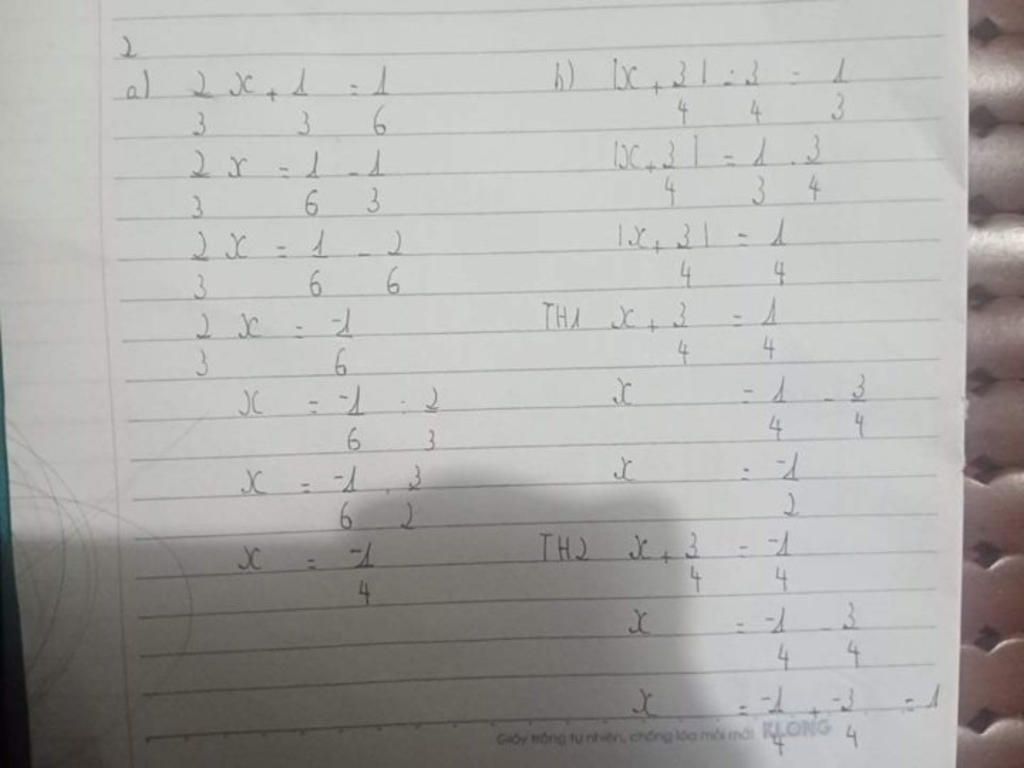 2
a) 2/3 x + 1/3 = 1/6
2/3 x = 1/6 - 1/3
2/3 x = 1/6 - 2/6
2/3 x = -1/6
x = -1/6 : 2/3
x = -1/6 . 3/2
x = -1/4
b) |x + 3/4| : 3/4 = 1/3
|x + 3/4| = 1/3 . 3/4
|x + 3/4| = 1/4
TH1 x + 3/4 = 1/4
x = 1/4 - 3/4
x = -1/2
TH2 x + 3/4 = -1/4
x = -1/4 - 3/4
x = -1/4 + -3/4 = 1
Giấy trắng tự nhiên, chống lóa mỏi mắt KLONG